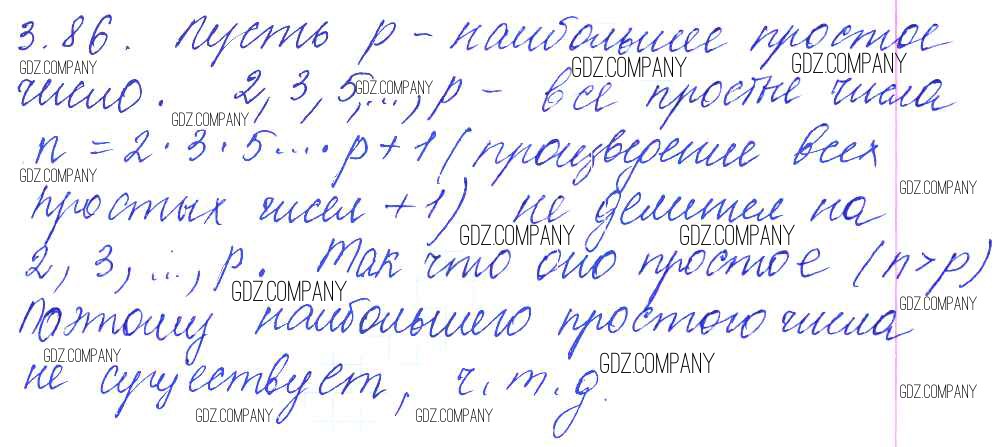 3.86. Пусть p - наибольшее простое
GDZ.COMPANY GDZ.COMPANY GDZ.COMPANY
число. 2, 3, 5, ..., p - все простые числа
GDZ.COMPANY GDZ.COMPANY
n = 2 · 3 · 5 ... · p + 1 (произведение всех
GDZ.COMPANY GDZ.COMPANY
простых чисел + 1) не делится на
GDZ.COMPANY GDZ.COMPANY
2, 3, ..., p. Так что оно простое (n > p)
GDZ.COMPANY GDZ.COMPANY
Поэтому наибольшего простого числа
GDZ.COMPANY GDZ.COMPANY
не существует, ч.т.д.
GDZ.COMPANY GDZ.COMPANY GDZ.COMPANY